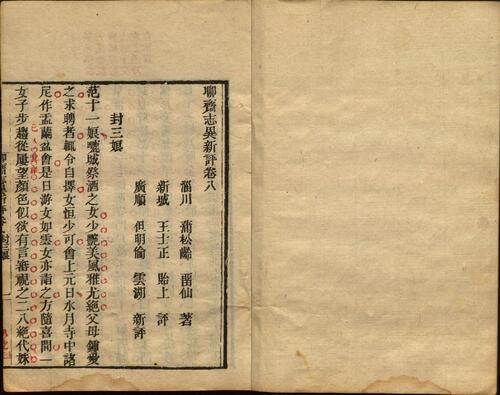 聊齋志異新評卷八
淄川 蒲松齡 畱仙 著
新城 王士正 貽上 評
廣順 但明倫 雲湖 新評
封三娘
范十一娘𤲞城祭酒之女少艷美風雅尤絕父母鍾愛
之求聘者輒令自擇女恒少可會上元日水月寺中諸
尼作盂蘭盆會是日游女如雲女亦詣之方隨喜間一
女子步趨從屢望顏色似欲有言審視之二八絕代姝